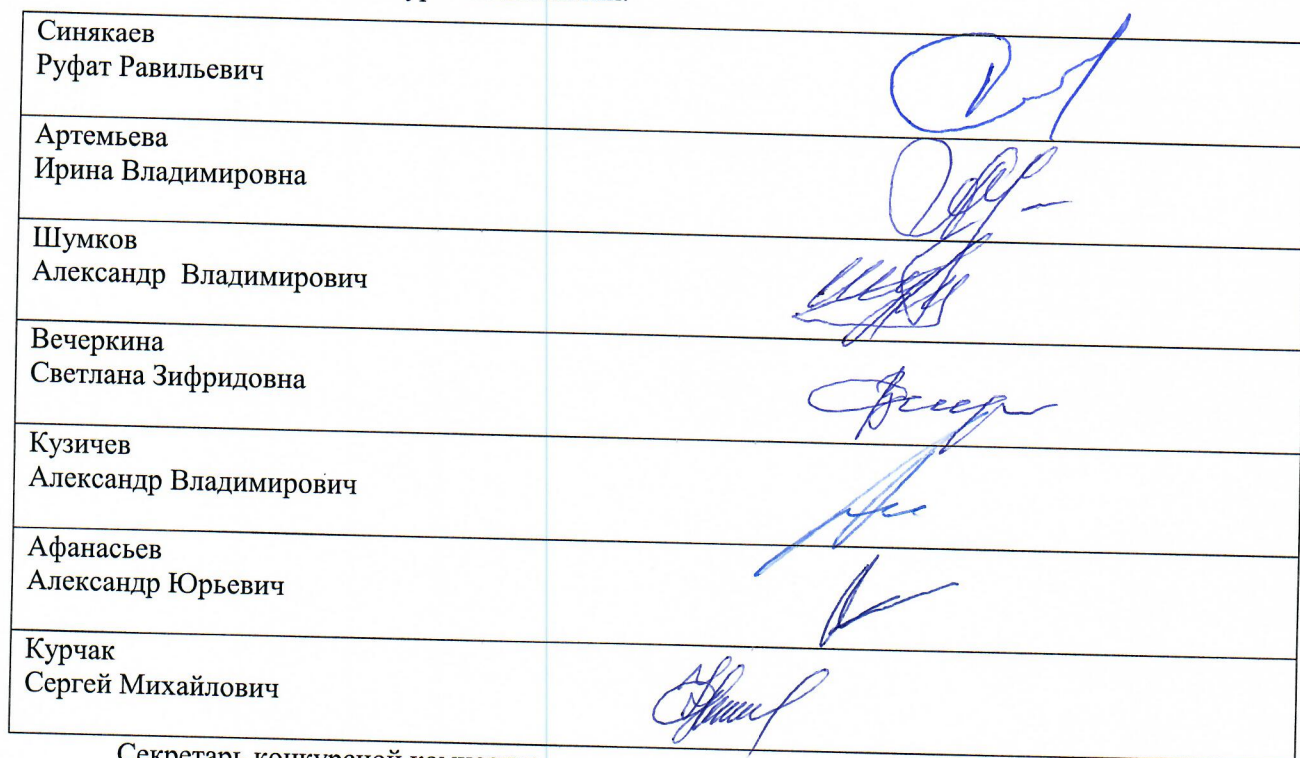 Синякаев
Руфат Равильевич
Артемьева
Ирина Владимировна
Шумков
Александр Владимирович
Вечеркина
Светлана Зифридовна
Кузичев
Александр Владимирович
Афанасьев
Александр Юрьевич
Курчак
Сергей Михайлович
Секретарь